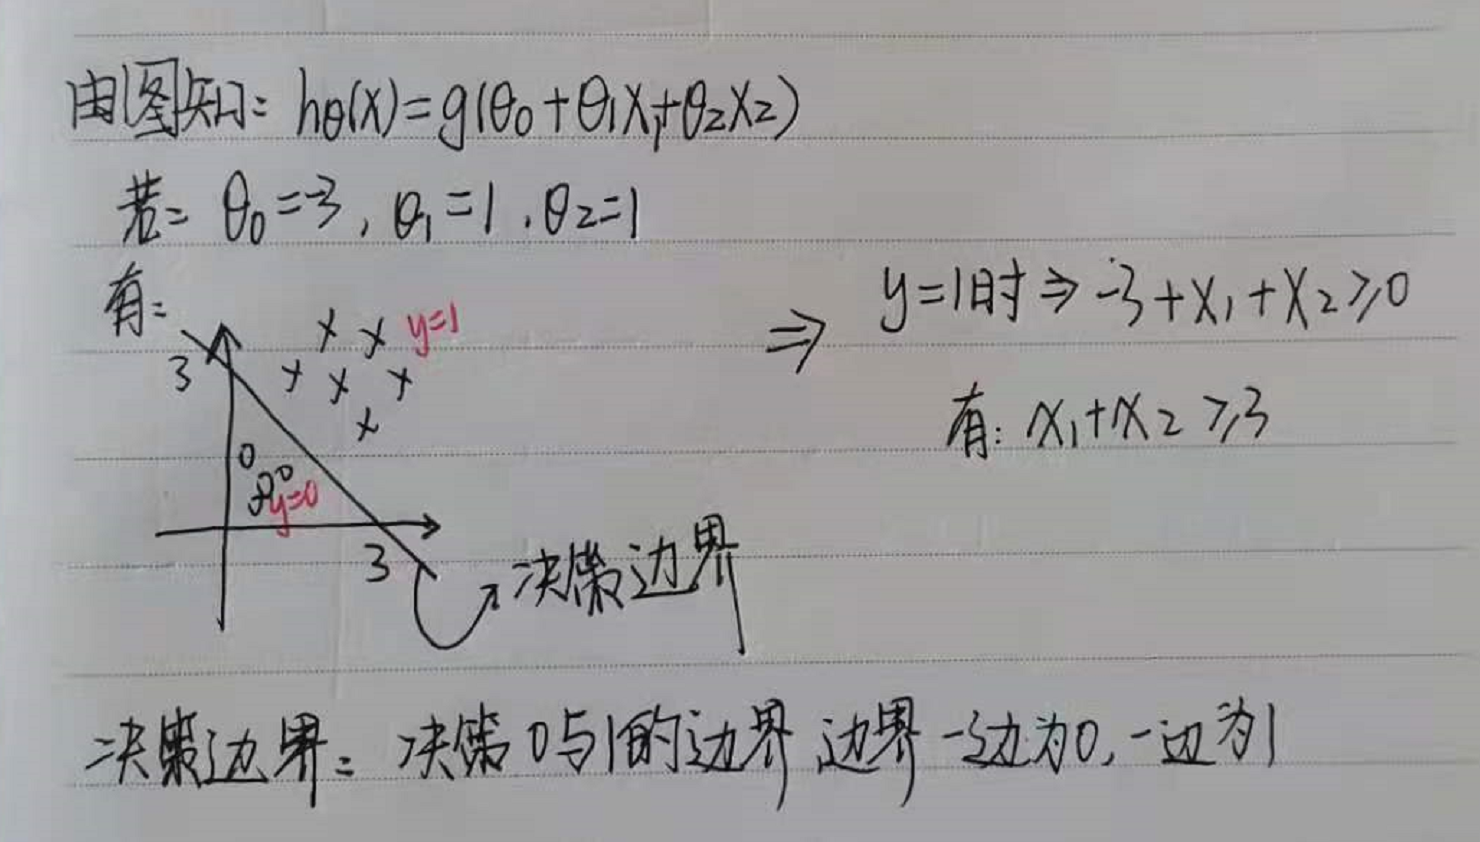 由图知: hθ(x)=g(θ0+θ1x1+θ2x2)
若: θ0=-3, θ1=1, θ2=1
有:
y=1
3
y=0
3
决策边界
⇒ y=1时⇒-3+x1+x2≥0
有: x1+x2≥3
决策边界: 决策0与1的边界 边界一边为0,一边为1